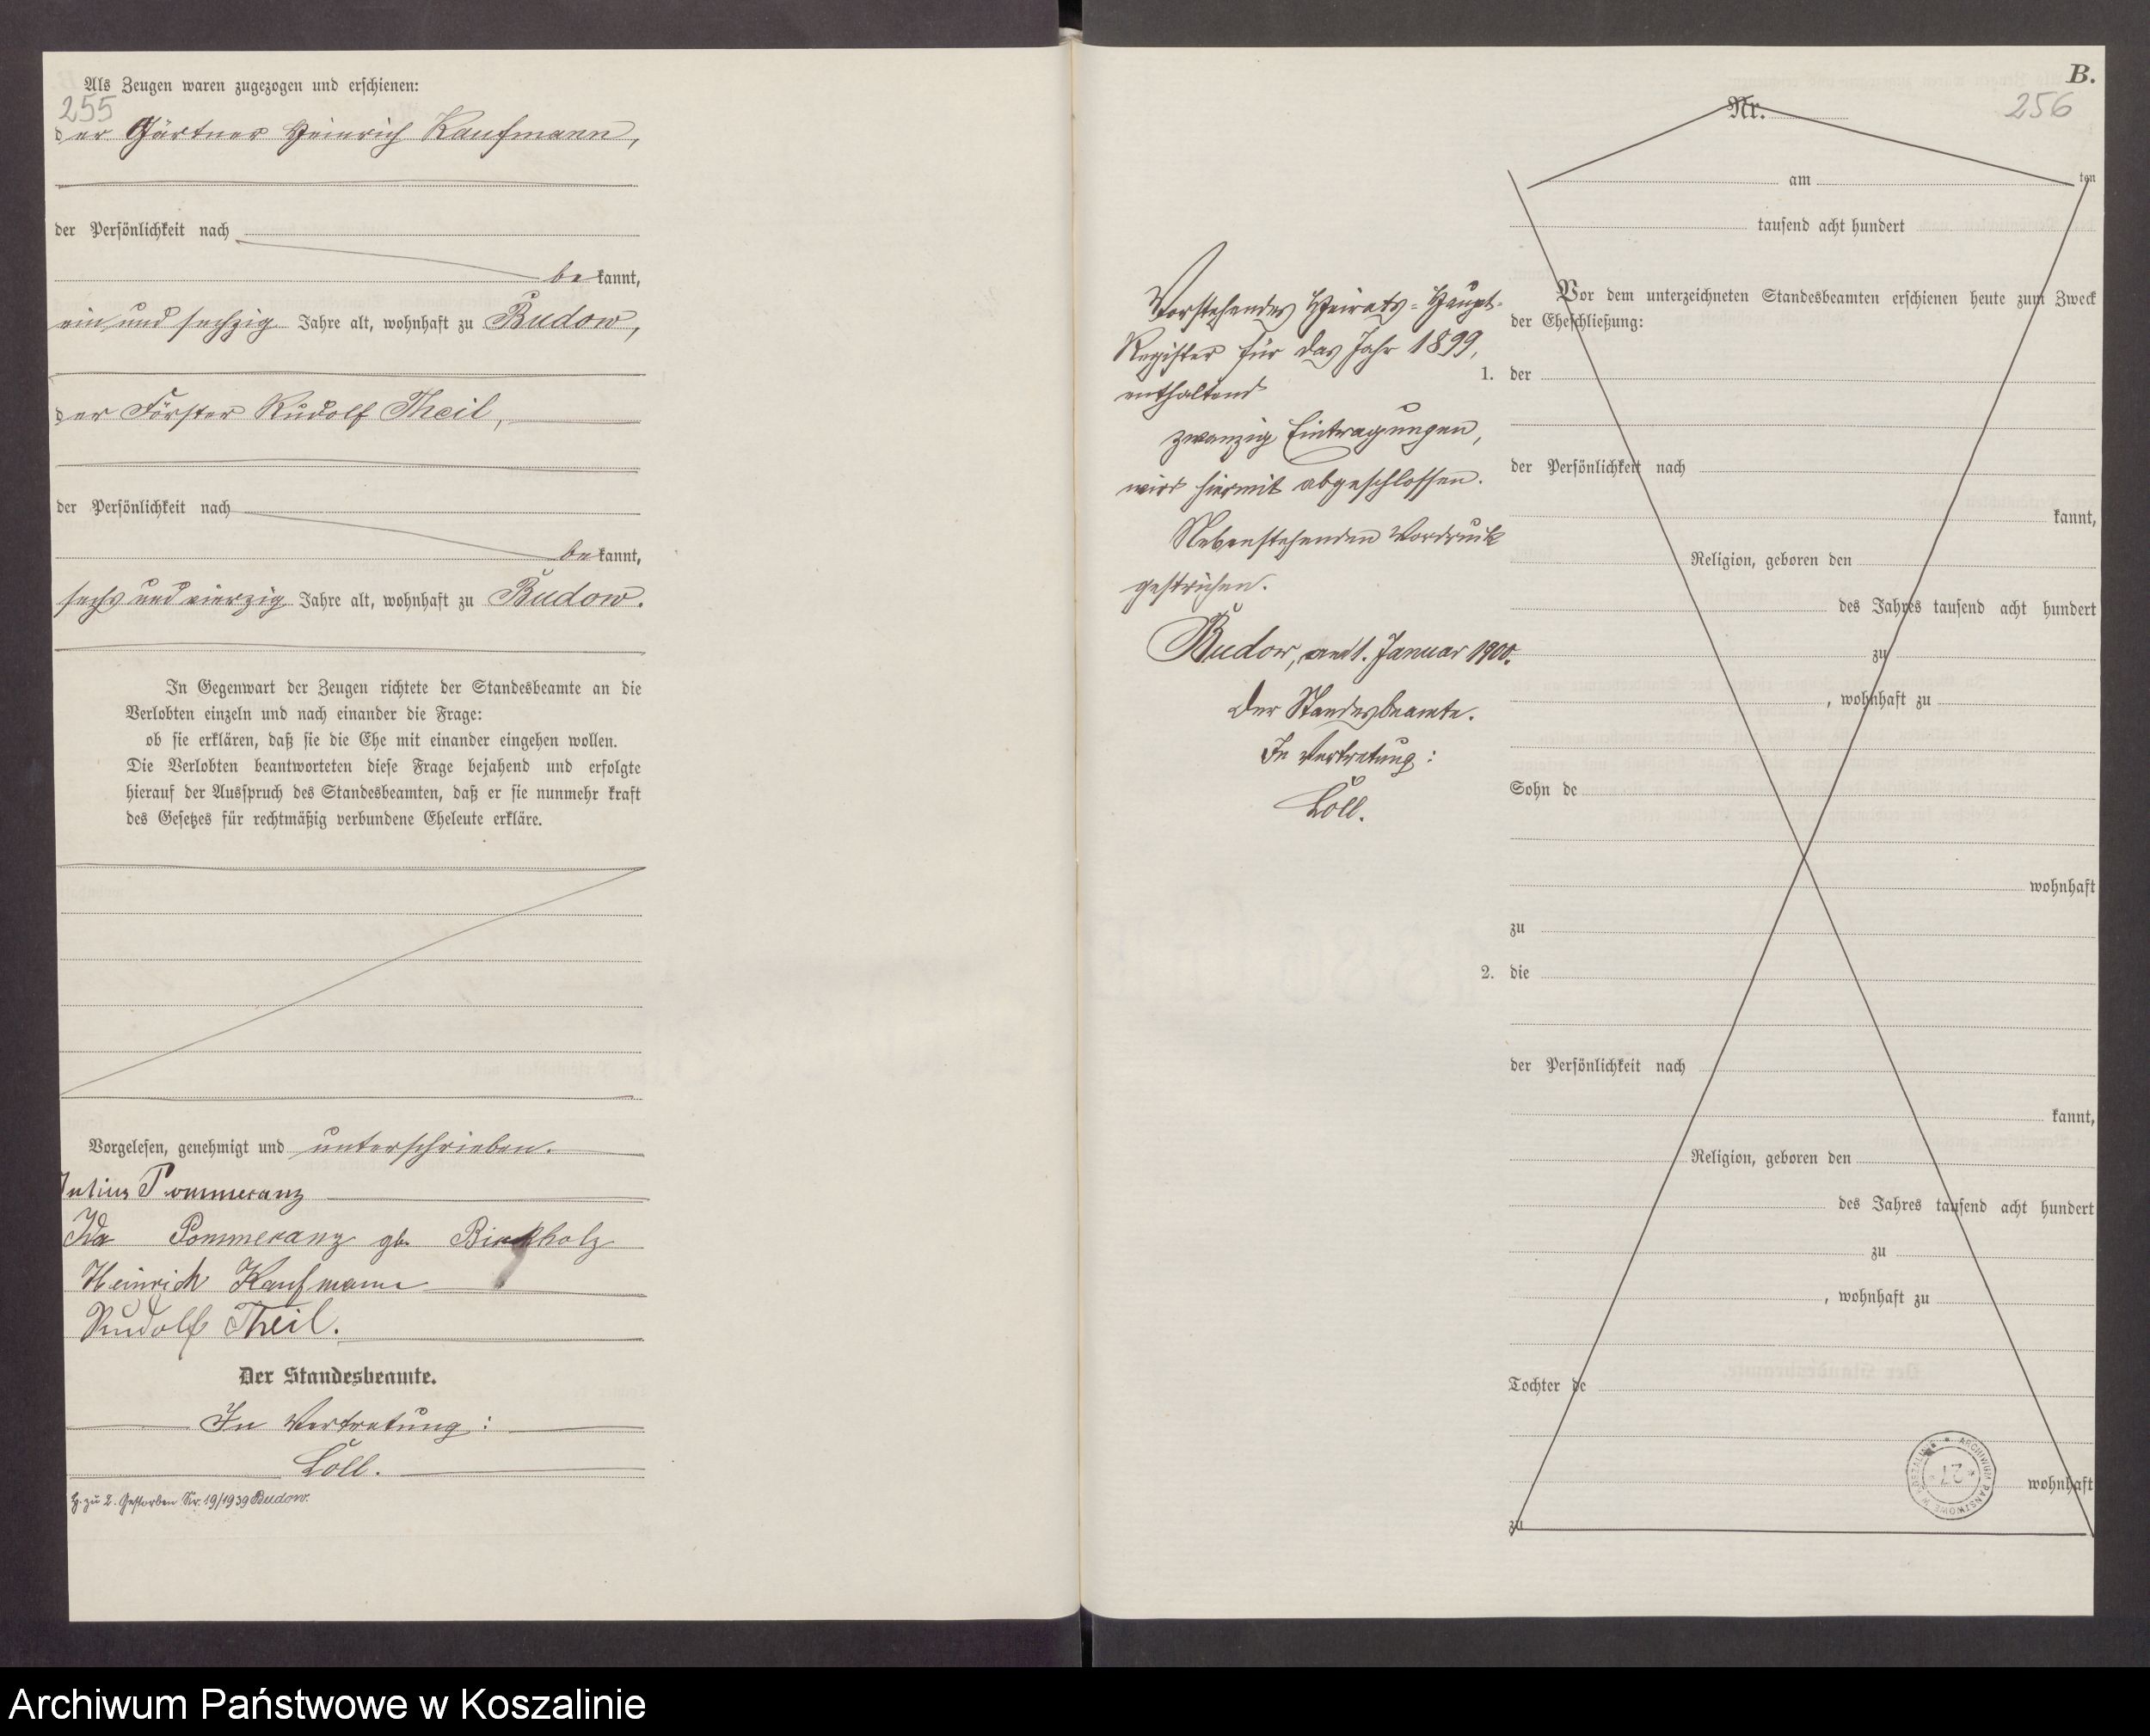 Als Zeugen waren zugezogen und erschienen:
255
der Gärtner Heinrich Kaufmann,
der Persönlichkeit nach
be kannt,
ein und sechzig Jahre alt, wohnhaft zu Budow,
der Förster Rudolf Theil,
der Persönlichkeit nach
be kannt,
sechs und vierzig Jahre alt, wohnhaft zu Budow.
In Gegenwart der Zeugen richtete der Standesbeamte an die
Verlobten einzeln und nach einander die Frage:
ob sie erklären, daß sie die Ehe mit einander eingehen wollen.
Die Verlobten beantworteten diese Frage bejahend und erfolgte
hierauf der Ausspruch des Standesbeamten, daß er sie nunmehr kraft
des Gesetzes für rechtmäßig verbundene Eheleute erkläre.
Vorgelesen, genehmigt und unterschrieben.
Julius Pommeranz
Ida Pommeranz gb. Birkholz
Heinrich Kaufmann
Rudolf Theil.
Der Standesbeamte.
In Vertretung:
Löll.
H. zu 2. Gestorben Nr. 19/1939 Budow.
Vorstehendes Heirats-Haupt-
Register für das Jahr 1899,
enthaltend
zwanzig Eintragungen,
wird hiermit abgeschlossen.
Nebenstehenden Vordruck
gestrichen.
Budow, am 1. Januar 1900.
Der Standesbeamte.
In Vertretung:
Löll.
B.
256
Nr.
am ten
tausend acht hundert
Vor dem unterzeichneten Standesbeamten erschienen heute zum Zweck
der Eheschließung:
1. der
der Persönlichkeit nach
kannt,
Religion, geboren den
des Jahres tausend acht hundert
zu
, wohnhaft zu
Sohn de
wohnhaft
zu
2. die
der Persönlichkeit nach
kannt,
Religion, geboren den
des Jahres tausend acht hundert
zu
, wohnhaft zu
Tochter de
wohnhaft
zu
ARCHIWUM PAŃSTWOWE W KOSZALINIE
27
Archiwum Państwowe w Koszalinie